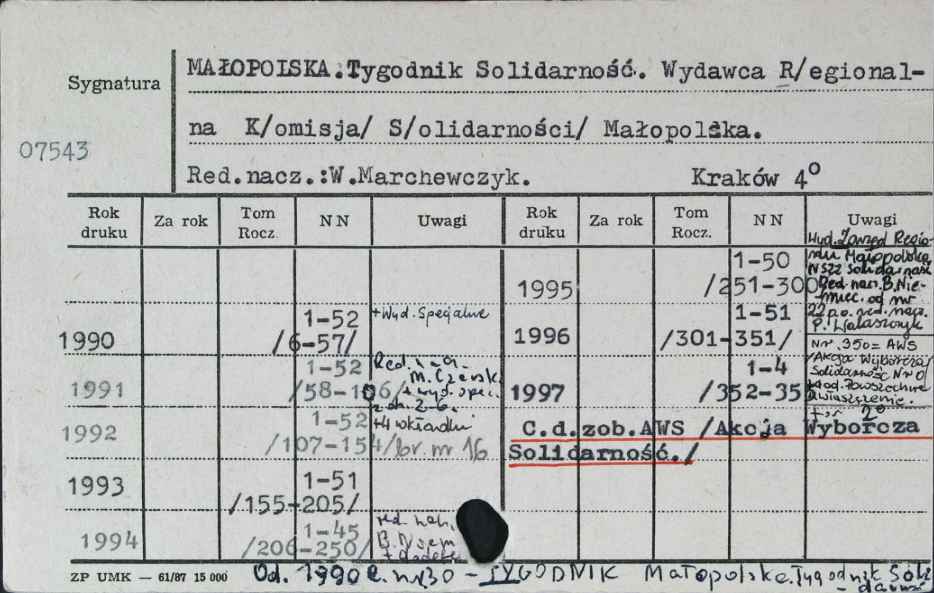 Sygnatura
MAŁOPOLSKA.Tygodnik Solidarność. Wydawca R/egional-
na K/omisja/ S/olidarności/ Małopolska.
07543
Red.nacz.:W.Marchewczyk. Kraków 4°
Rok druku Za rok Tom Rocz. NN Uwagi Rok druku Za rok Tom Rocz. NN Uwagi
1990 1-52 /6-57/ +Wyd. Specjalne
1991 1-52 /58-106/ Red. M. Czerski + wyd. spec.
1992 1-52 /107-154/ +4 wkładki br. nr 16
1993 1-51 /155-205/
1994 1-45 /206-250/ red. nacz. B. Niem
1995 1-50 /251-300 Wyd. Zarząd Regionu Małopolska NSZZ Solidarność Red. nacz. B. Niemiec. od nr
1996 1-51 /301-351/ 22 p.o. red. nacz. P. Walaszczyk
Nr. 350= AWS
1997 1-4 /352-35 /Akcja Wyborcza Solidarność Nr 0/
2°
C.d.zob.AWS /Akcja Wyborcza
Solidarność./
ZP UMK — 61/87 15 000
Od. 1990 r. nr 30 - TYGODNIK Małopolska. Tygodnik Soli-
darność